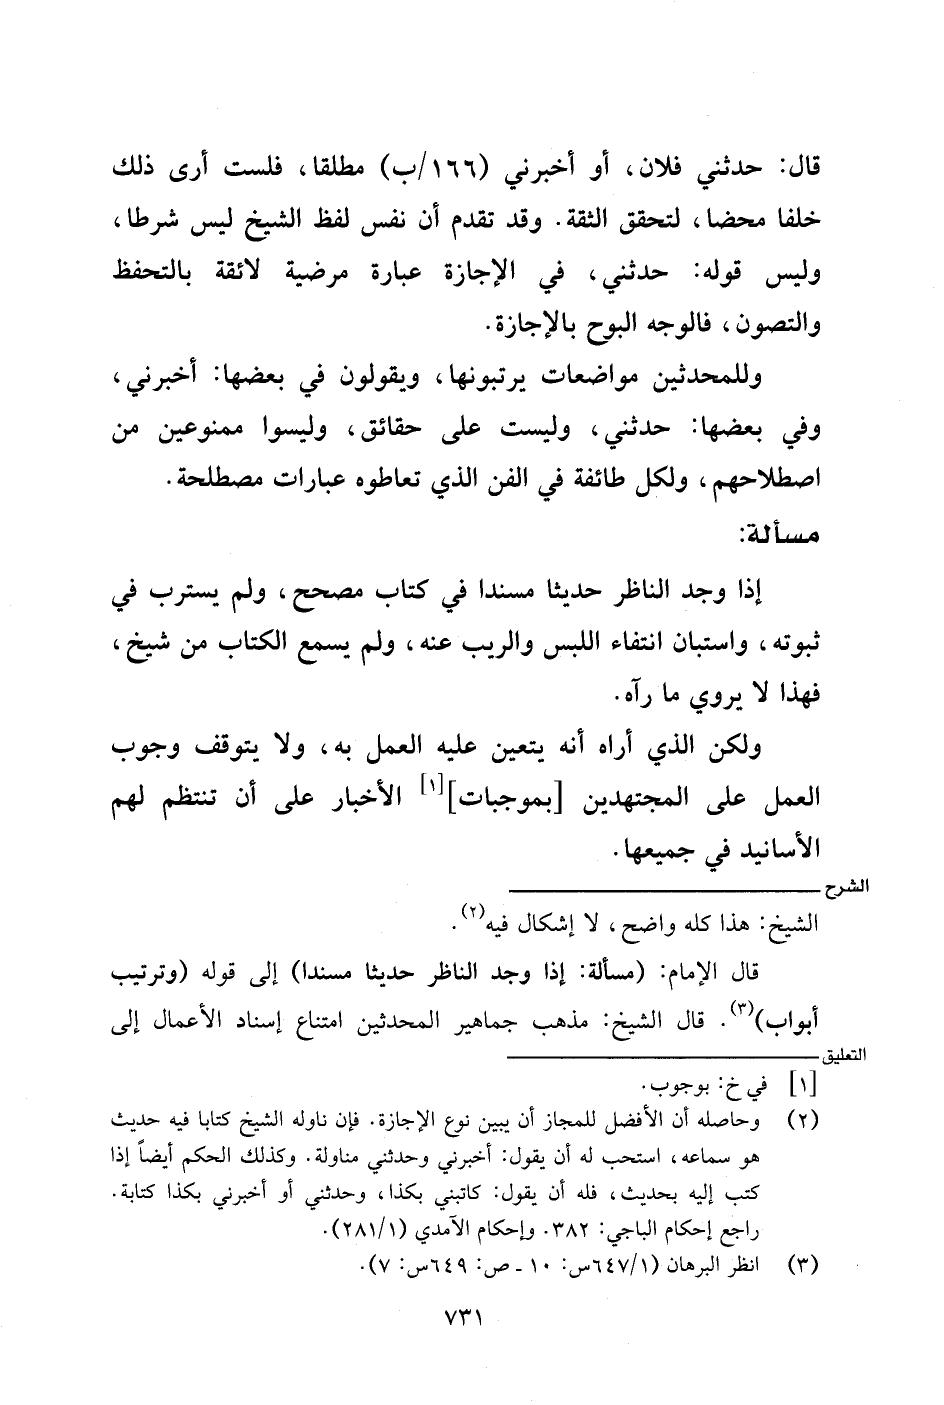 قال: حدثني فلان، أو أخبرني (١٦٦/ب) مطلقا، فلست أرى ذلك
خلفا محضا، لتحقق الثقة. وقد تقدم أن نفس لفظ الشيخ ليس شرطا،
وليس قوله: حدثني، في الإجازة عبارة مرضية لائقة بالتحفظ
والتصون، فالوجه البوح بالإجازة.
وللمحدثين مواضعات يرتبونها، ويقولون في بعضها: أخبرني،
وفي بعضها: حدثني، وليست على حقائق، وليسوا ممنوعين من
اصطلاحهم، ولكل طائفة في الفن الذي تعاطوه عبارات مصطلحة.
مسألة:
إذا وجد الناظر حديثا مسندا في كتاب مصحح، ولم يسترب في
ثبوته، واستبان انتفاء اللبس والريب عنه، ولم يسمع الكتاب من شيخ،
فهذا لا يروي ما رآه.
ولكن الذي أراه أنه يتعين عليه العمل به، ولا يتوقف وجوب
العمل على المجتهدين [بموجبات][١] الأخبار على أن تنتظم لهم
الأسانيد في جميعها.
الشرح
الشيخ: هذا كله واضح، لا إشكال فيه(٢).
قال الإمام: (مسألة: إذا وجد الناظر حديثا مسندا) إلى قوله (وترتيب
أبواب)(٣). قال الشيخ: مذهب جماهير المحدثين امتناع إسناد الأعمال إلى
التعليق
[١] في خ: بوجوب.
(٢) وحاصله أن الأفضل للمجاز أن يبين نوع الإجازة. فإن ناوله الشيخ كتابا فيه حديث
هو سماعه، استحب له أن يقول: أخبرني وحدثني مناولة. وكذلك الحكم أيضاً إذا
كتب إليه بحديث، فله أن يقول: كاتبني بكذا، وحدثني أو أخبرني بكذا كتابة.
راجع إحكام الباجي: ٣٨٢. وإحكام الآمدي (٢٨١/١).
(٣) انظر البرهان (٦٤٧/١س: ١٠ - ص: ٦٤٩س: ٧).
٧٣١